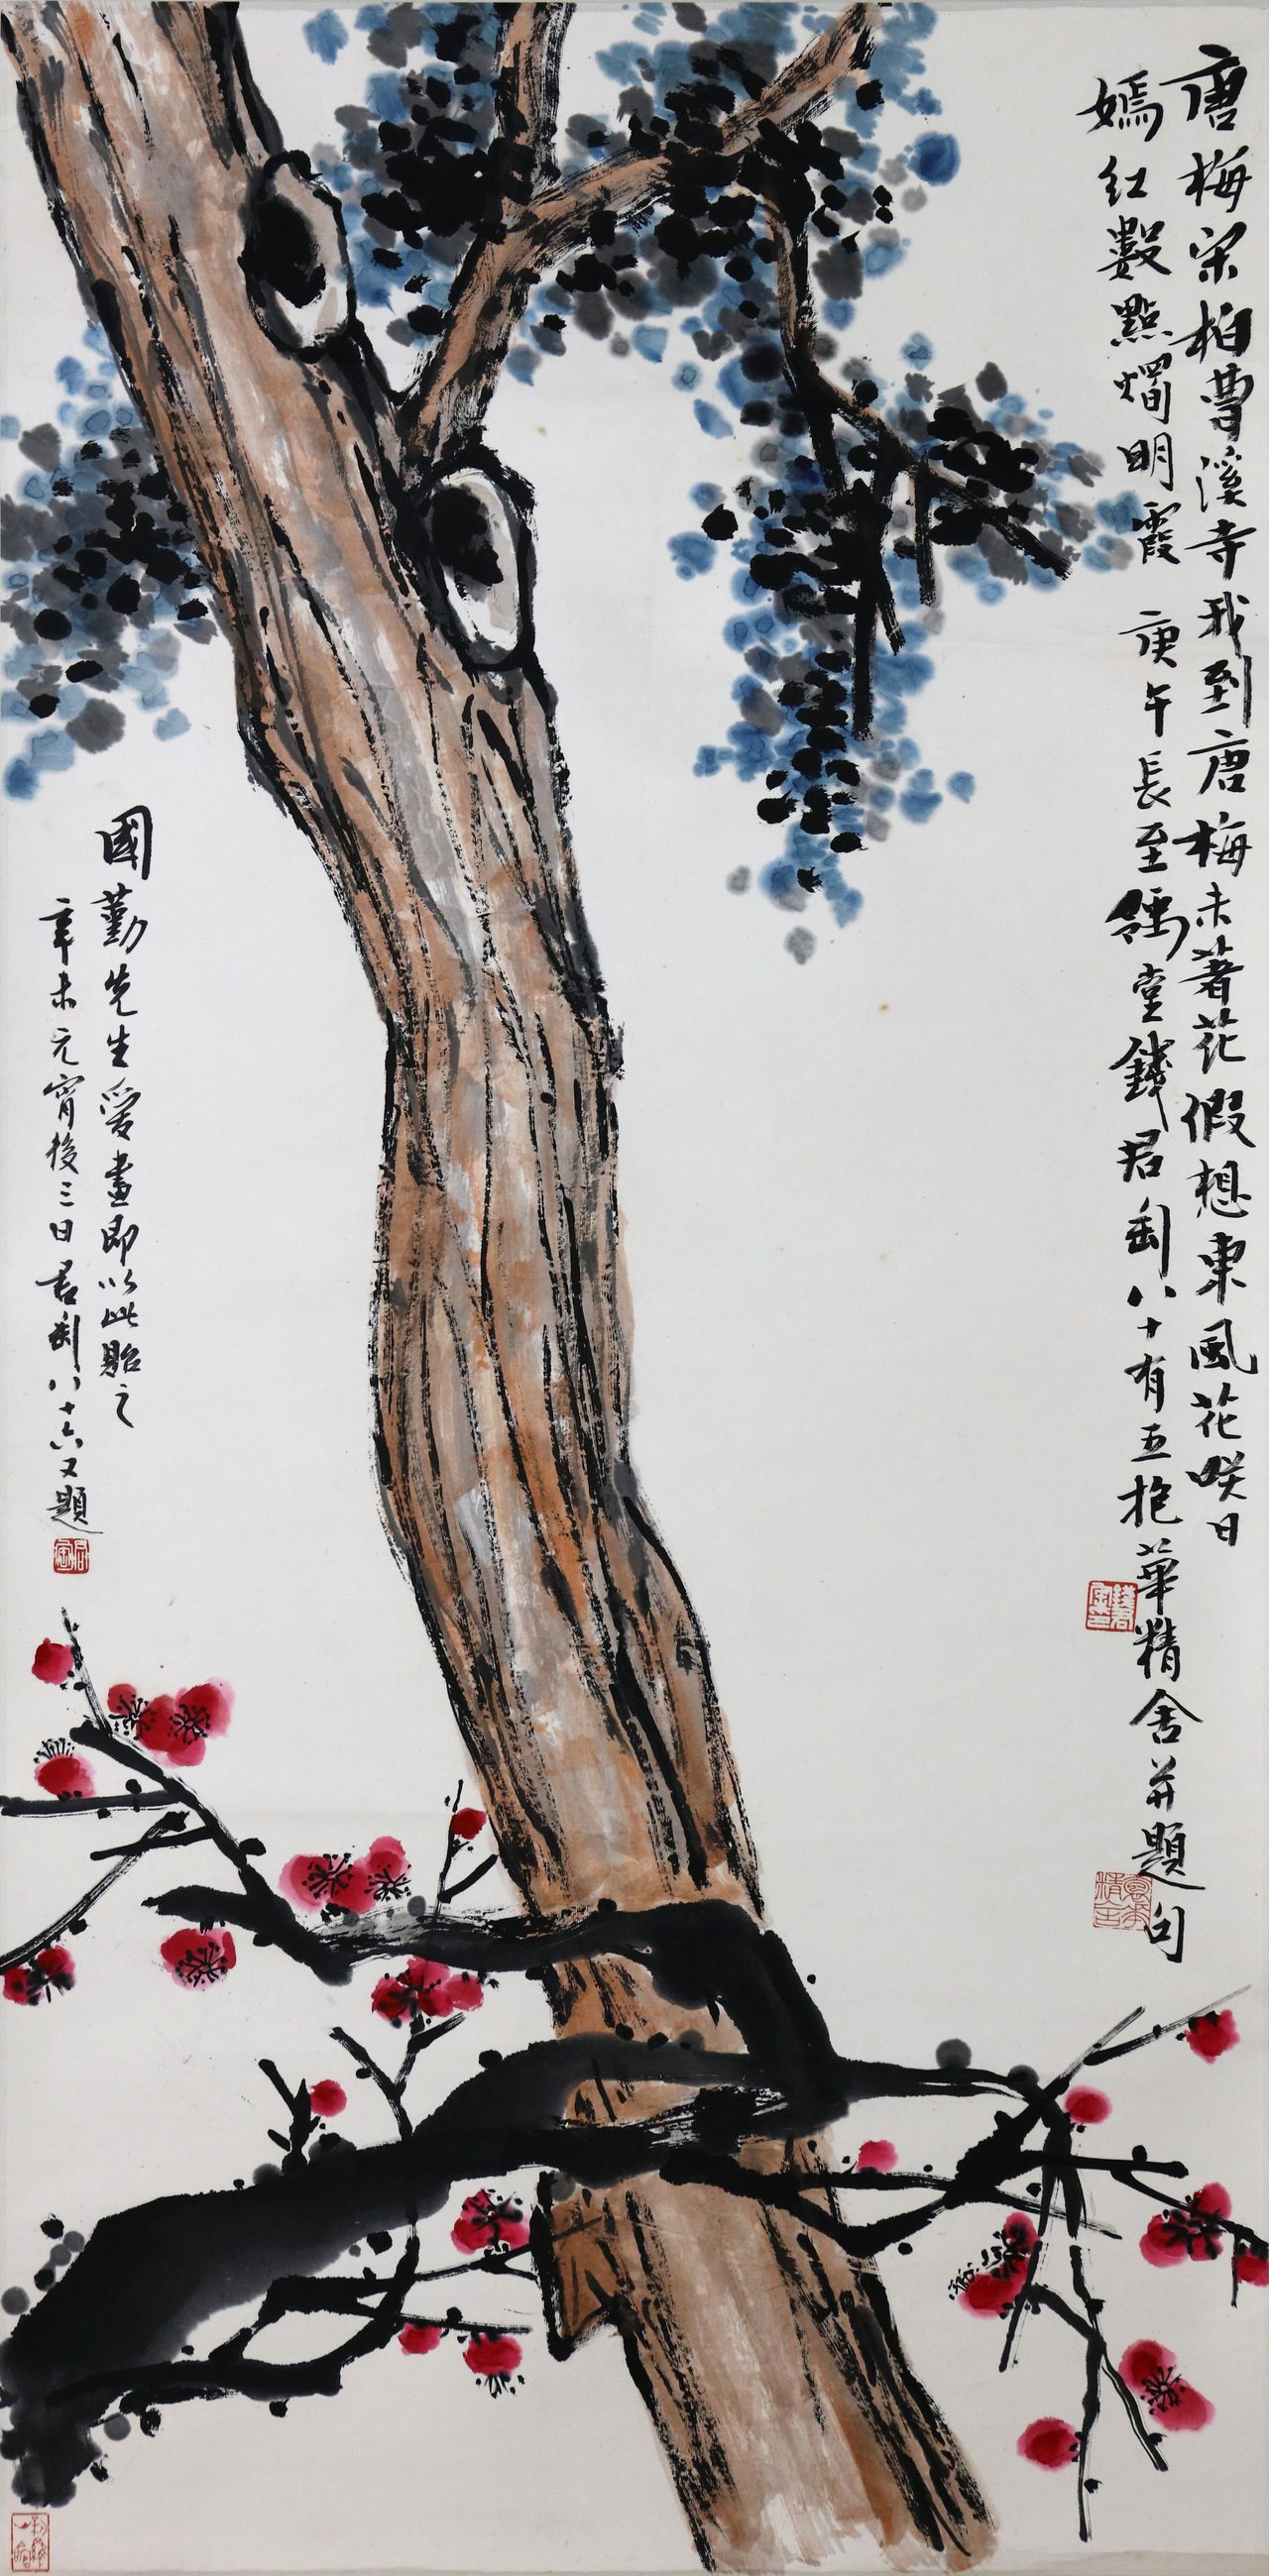 唐梅宋柏曹溪寺我到唐梅未著花假想東風花咲日
嫣紅數點爛明霞 庚午長至豫堂錢君匋八十有五抱華精舍并題句
國勤先生愛畫即以此貽之
辛未元宵後三日君匋八十六又題